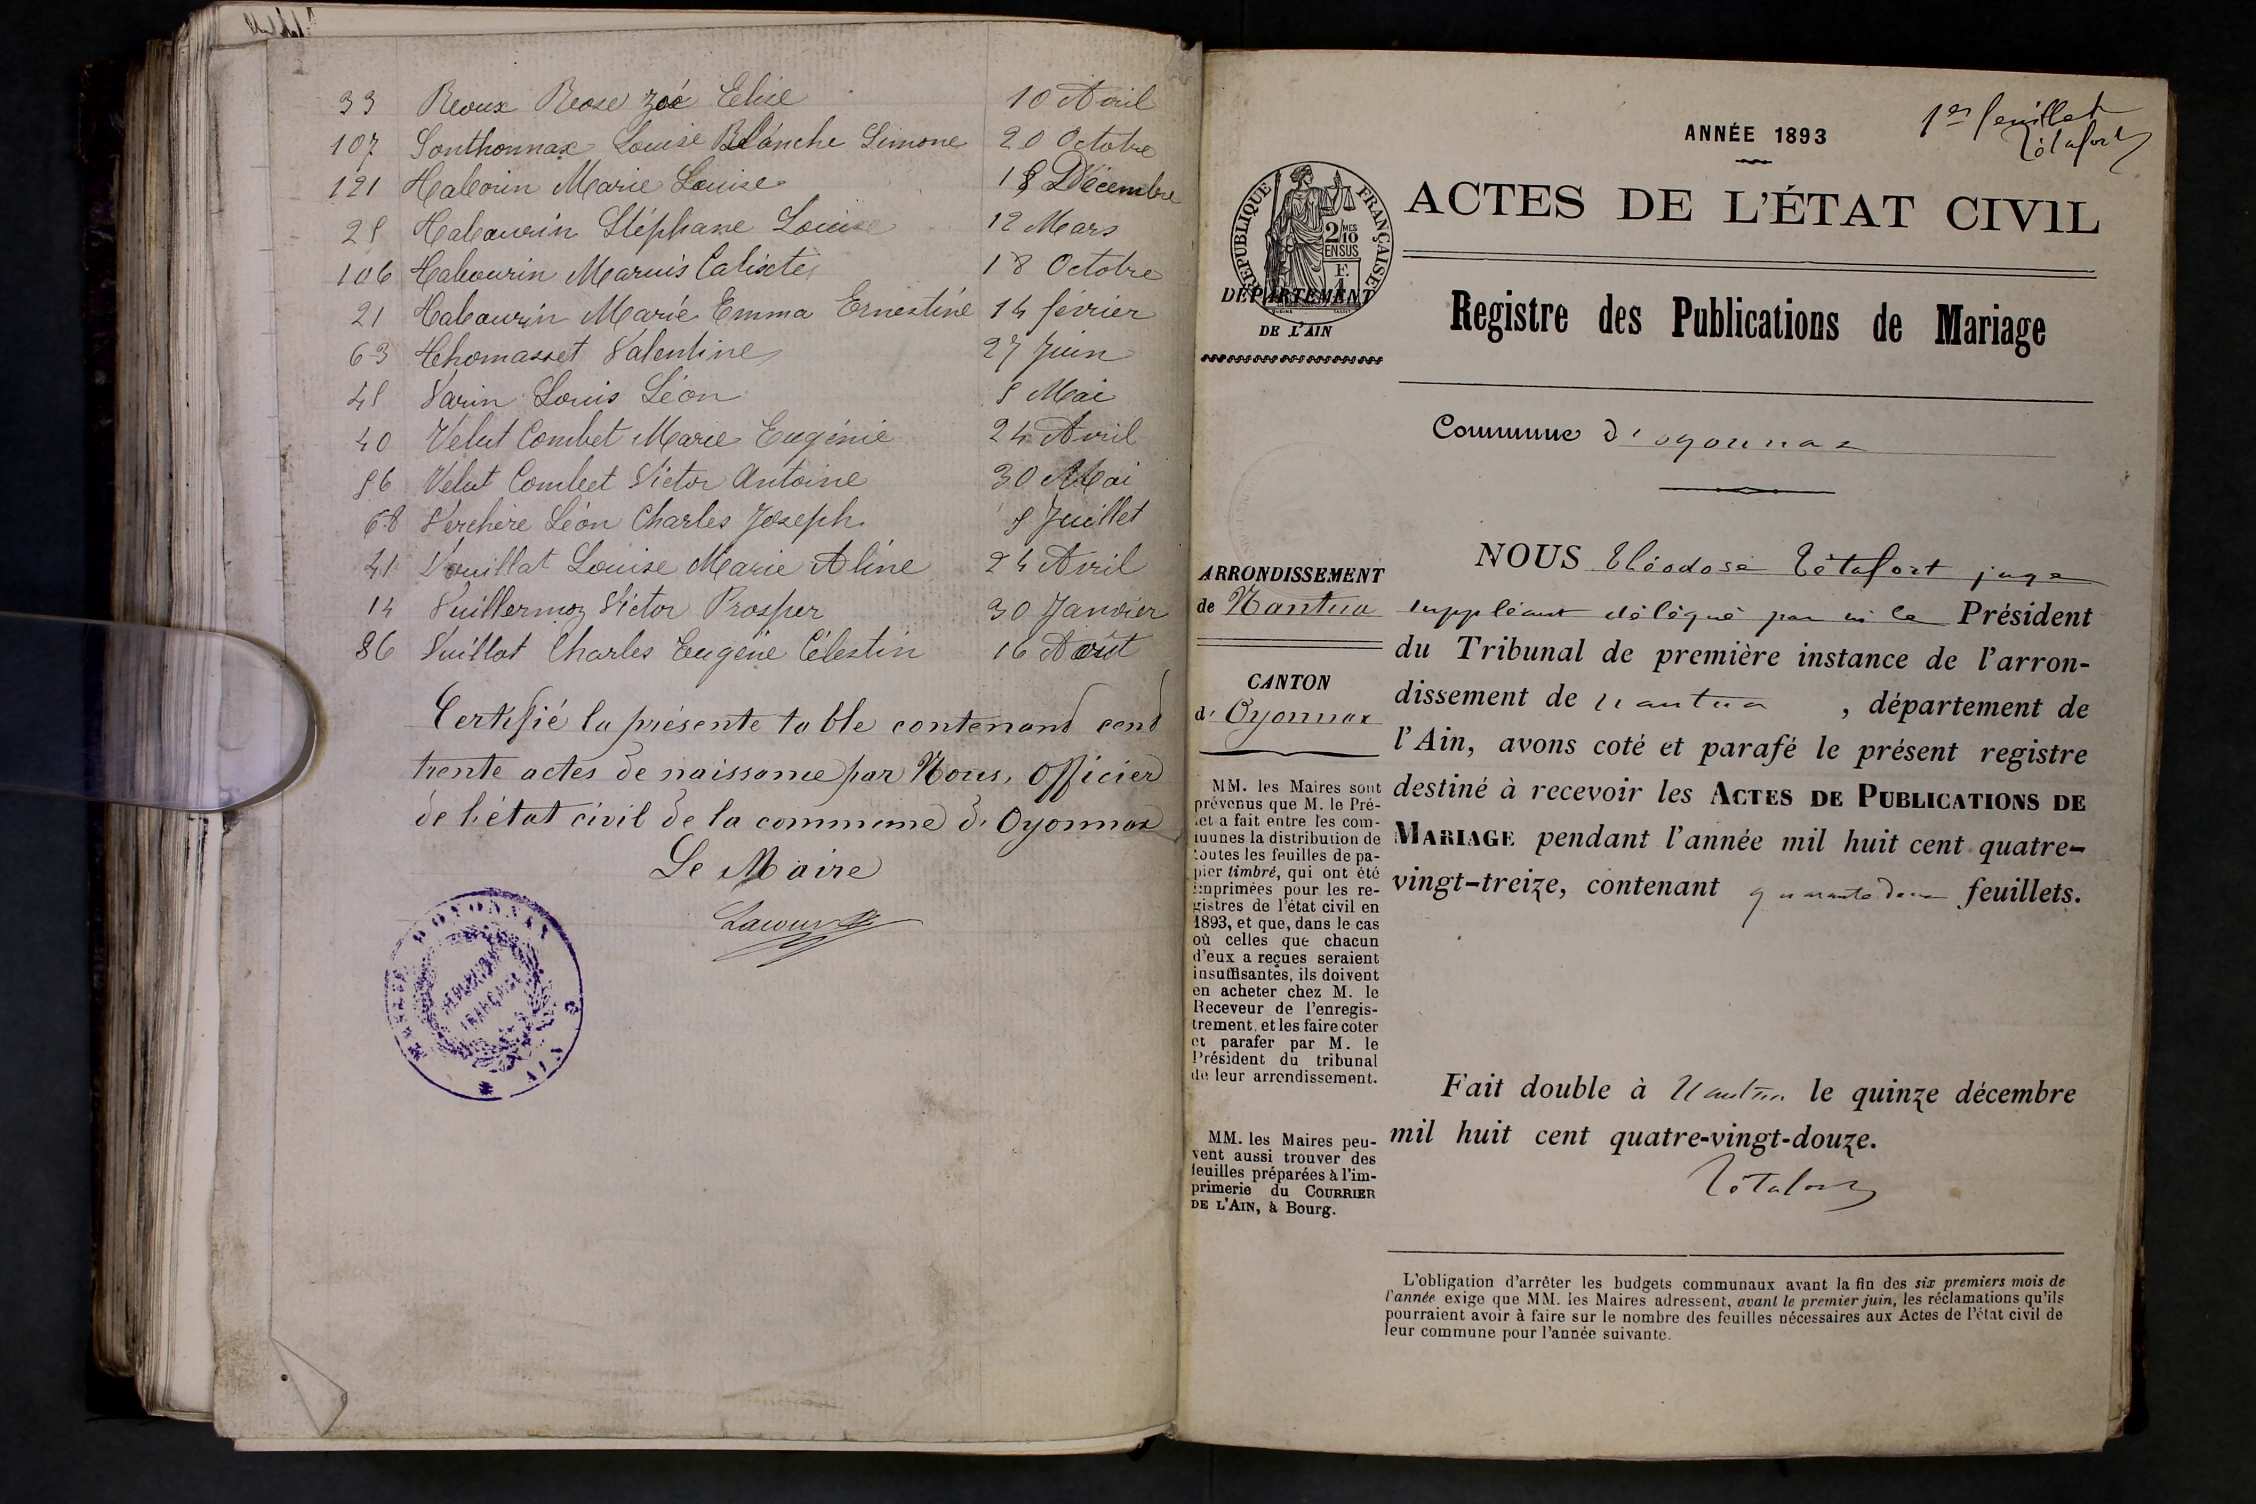 33 Roux Rose Zoé Elise 10 Avril
107 Sonthonnax Louise Blanche Simone 20 Octobre
121 Taborin Marie Louise 18 Décembre
25 Tabourin Stéphane Louise 12 Mars
106 Tabourin Marius Calixte 18 Octobre
21 Tabourin Marie Emma Ernestine 14 février
63 Thomasset Valentine 27 Juin
45 Varin Louis Léon 5 Mai
40 Velut Combet Marie Eugénie 24 Avril
56 Velut Combet Victor Antoine 30 Mai
68 Verchère Léon Charles Joseph 5 Juillet
41 Vouillat Louise Marie Aline 24 Avril
14 Vuillermoz Victor Prosper 30 Janvier
86 Vuillot Charles Eugène Célestin 16 Août
Certifié la présente table contenant cent
trente actes de naissance par Nous, Officier
de l'état civil de la commune d'Oyonnax
Le Maire
RÉPUBLIQUE
FRANÇAISE
AIN
1er feuillet
Tétafort
ANNÉE 1893
ACTES DE L'ÉTAT CIVIL
RÉPUBLIQUE FRANÇAISE
2 MES
10
EN SUS
DÉPARTEMENT
DE L'AIN
Registre des Publications de Mariage
Commune d'oyonnax
ARRONDISSEMENT
de Nantua
CANTON
d'Oyonnax
MM. les Maires sont
prévenus que M. le Pré-
fet a fait entre les com-
munes la distribution de
toutes les feuilles de pa-
pier timbré, qui ont été
imprimées pour les re-
gistres de l'état civil en
1893, et que, dans le cas
où celles que chacun
d'eux a reçues seraient
insuffisantes, ils doivent
en acheter chez M. le
Receveur de l'enregis-
trement, et les faire coter
et parafer par M. le
Président du tribunal
de leur arrondissement.
MM. les Maires peu-
vent aussi trouver des
feuilles préparées à l'im-
primerie du COURRIER
DE L'AIN, à Bourg.
NOUS Théodose Tétafort juge
suppléant délégué par m le Président
du Tribunal de première instance de l'arron-
dissement de nantua , département de
l'Ain, avons coté et parafé le présent registre
destiné à recevoir les ACTES DE PUBLICATIONS DE
MARIAGE pendant l'année mil huit cent quatre-
vingt-treize, contenant quarante deux feuillets.
Fait double à Nantua le quinze décembre
mil huit cent quatre-vingt-douze.
Tétafort
L'obligation d'arrêter les budgets communaux avant la fin des six premiers mois de
l'année exige que MM. les Maires adressent, avant le premier juin, les réclamations qu'ils
pourraient avoir à faire sur le nombre des feuilles nécessaires aux Actes de l'état civil de
leur commune pour l'année suivante.